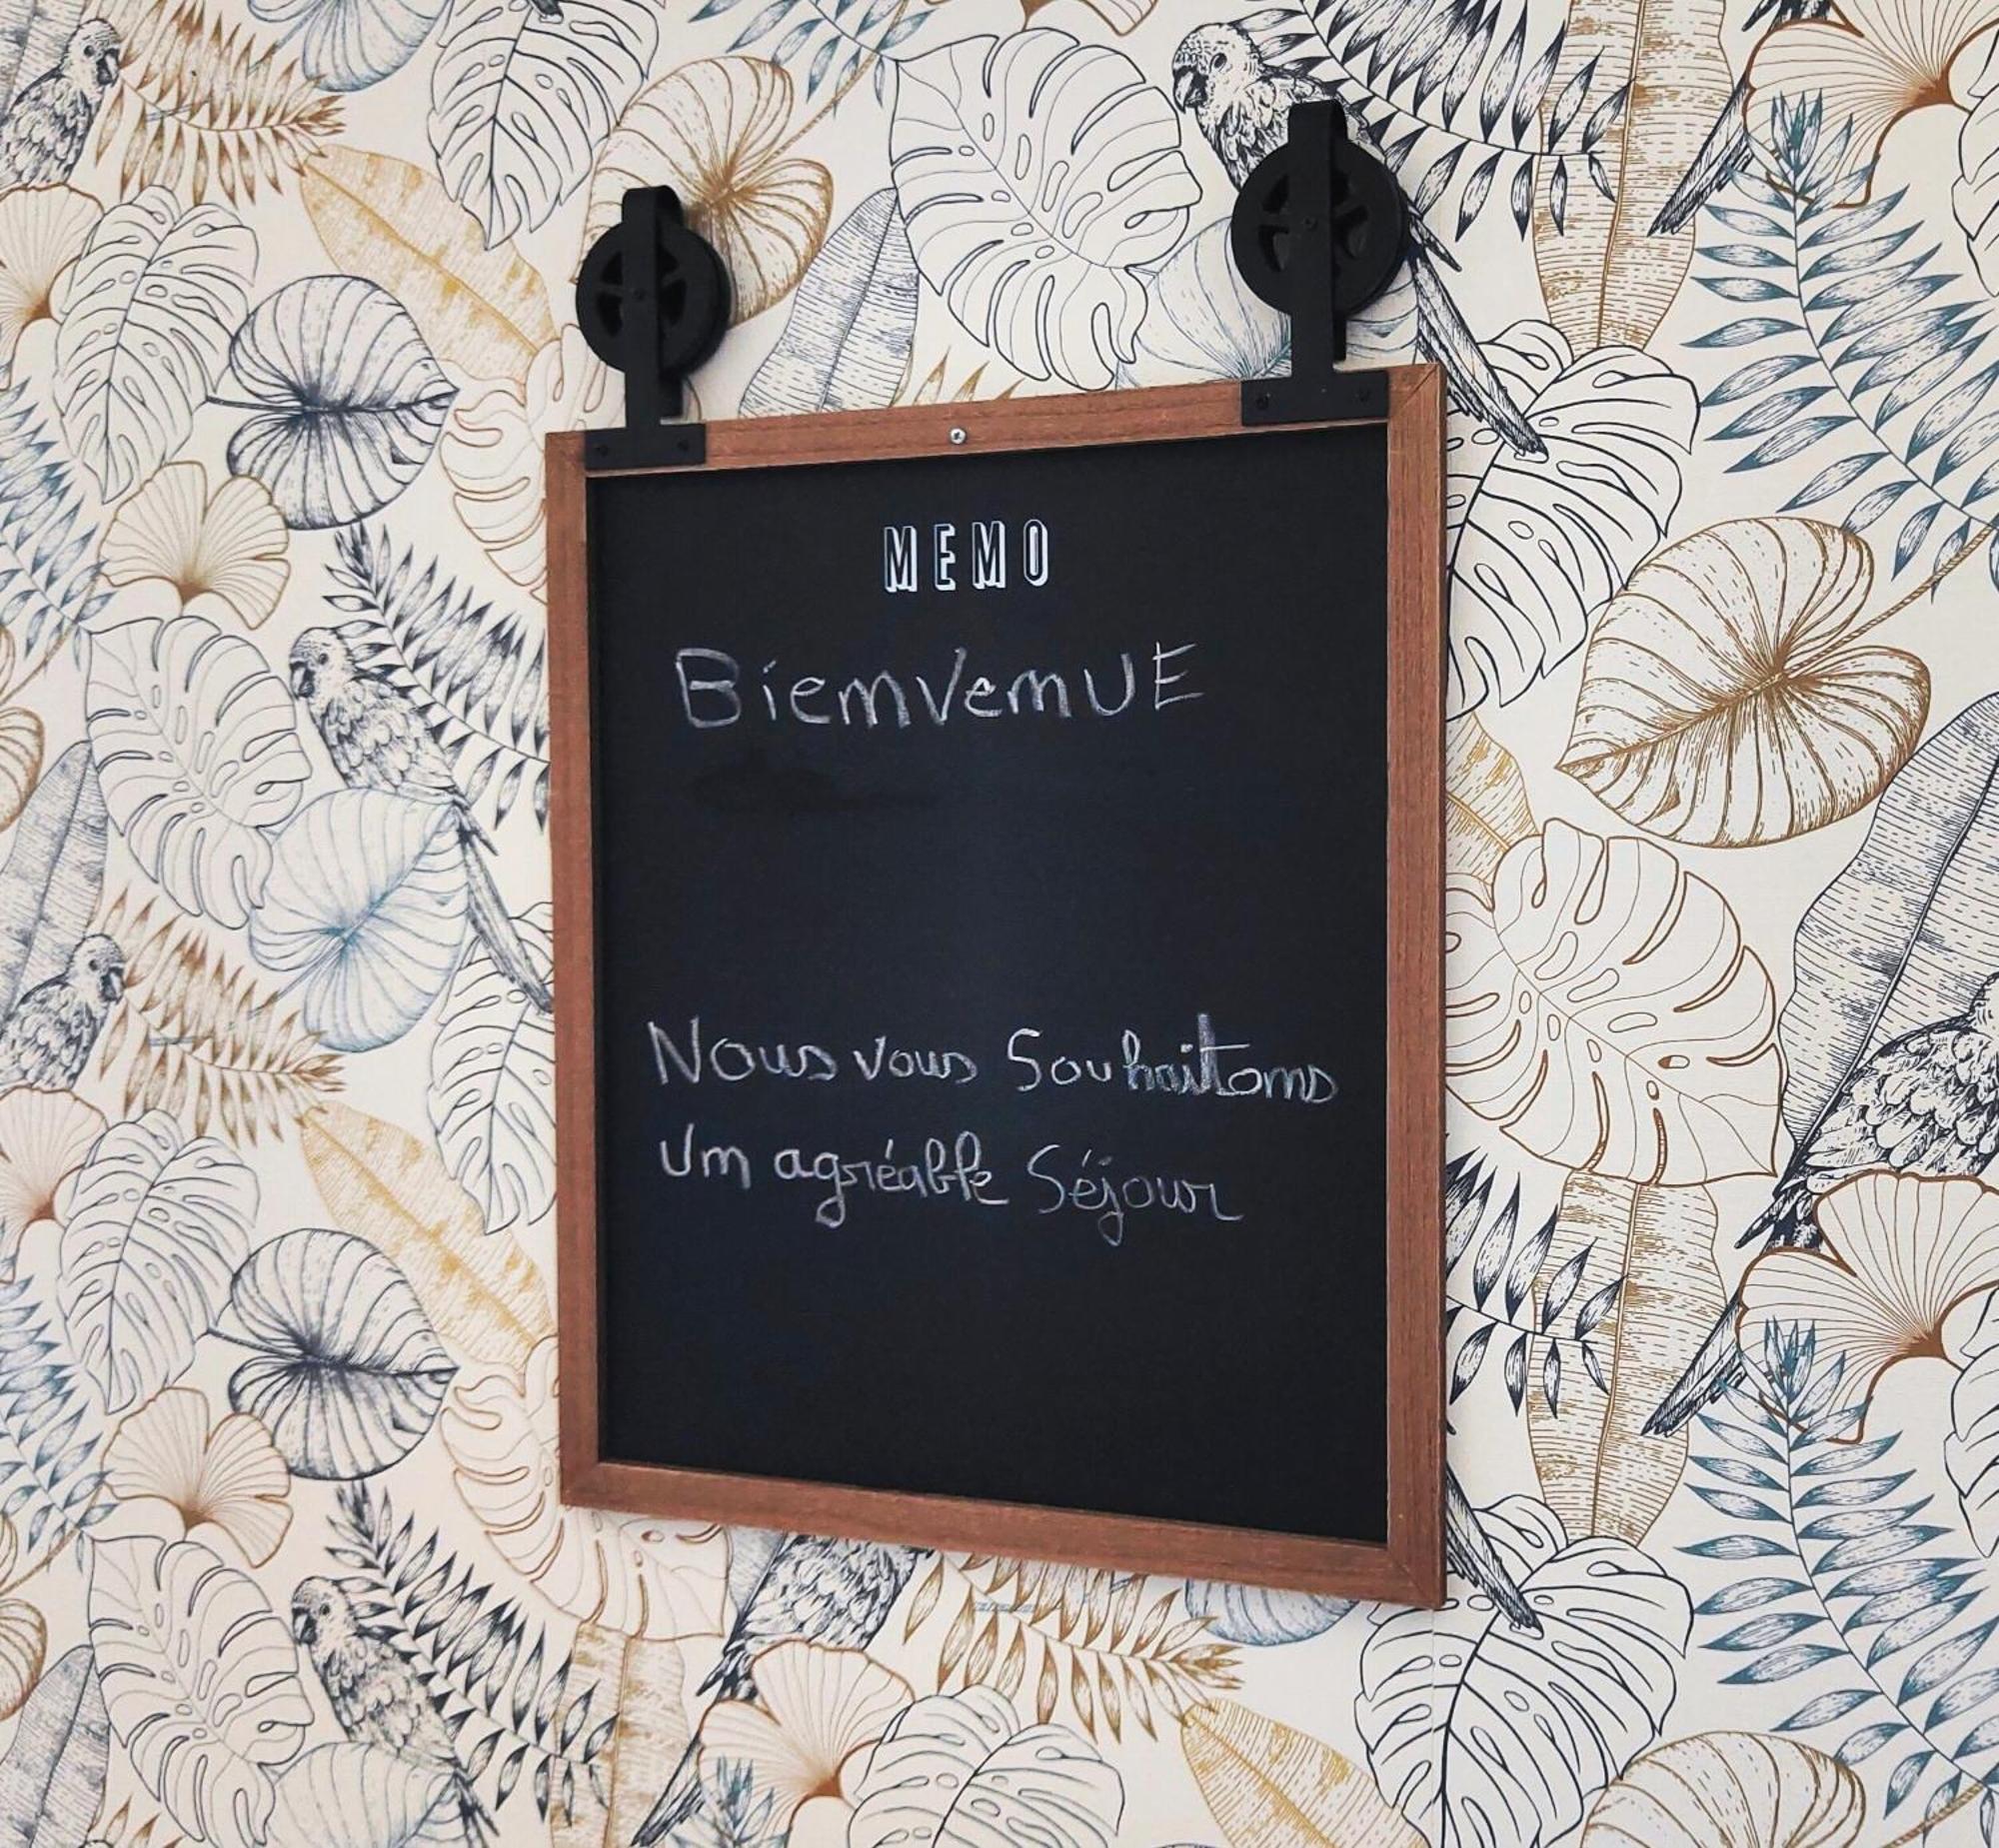 MEMO
BienvenUE
Nous vous Souhaitons
Un agréable Séjour